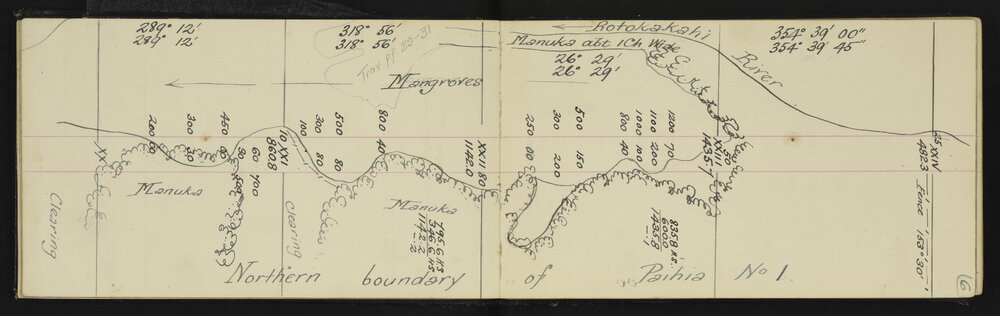 289° 12'
289° 12'
318° 56'
318° 56'
Trav pg 29-31
Mangroves
Rotokakahi
River
Manuka abt 1 Ch Wide
26° 29'
26° 29'
354° 39' 00"
354° 39' 45"
XX
200
300
30
450
40
80
60
700
10 XXI
860.8
100
300
80
500
80
800
40
XXII 80
1142.0
250
300
200
500
150
800
40
1000
10
1100
200
1200
70
XXIII
1435.7
25 XXIV
482.3
Fence 153° 30'
Clearing
Manuka
Clearing
Manuka
795.6 Ks
346.6 Ks
1142.2
.2
835.8 Ks
600.0
1435.8
.1
Clearing
Northern boundary of Paihia No 1.
6